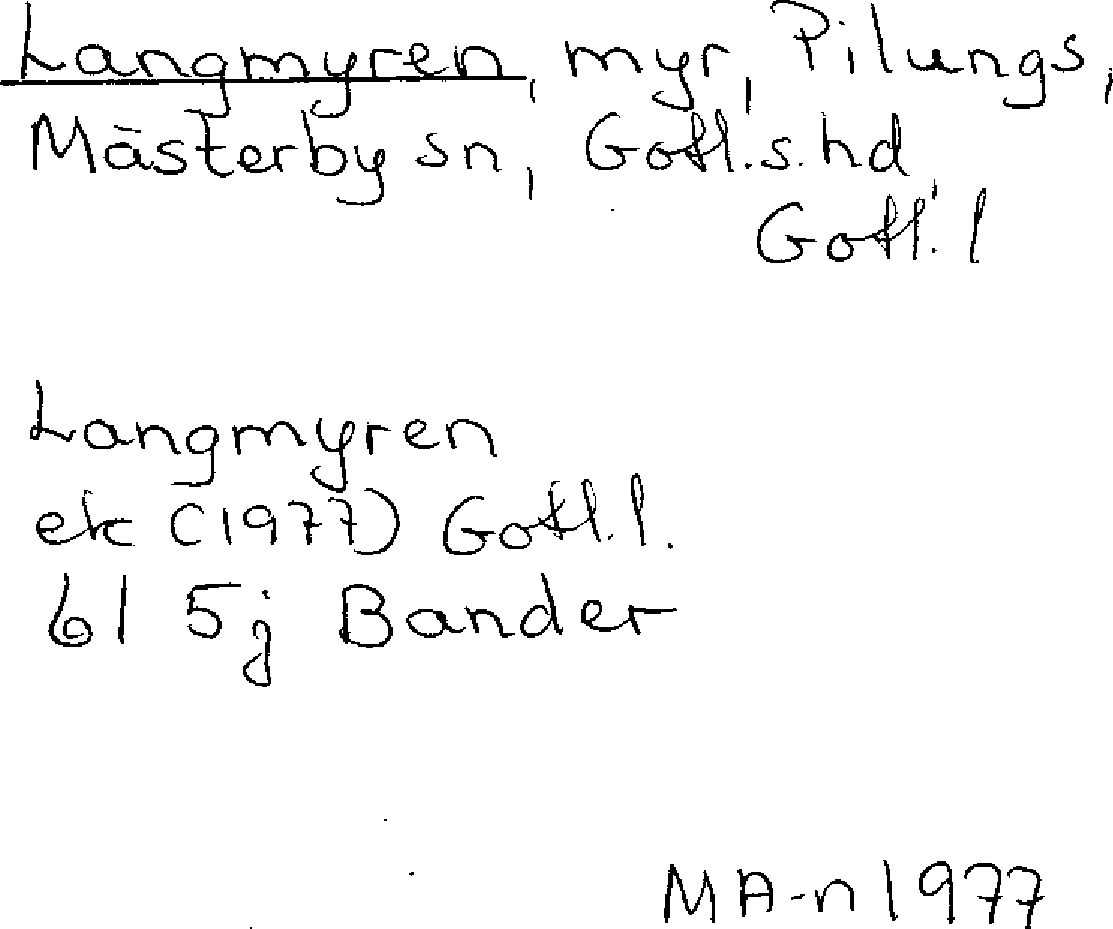 Langmyren, myr, Pilungs,
Mästerby sn, Gotl.s.hd,
Gotl. l
Langmyren
ek (1977) Gotl.l.
6I 5j Bander
MA-n 1977